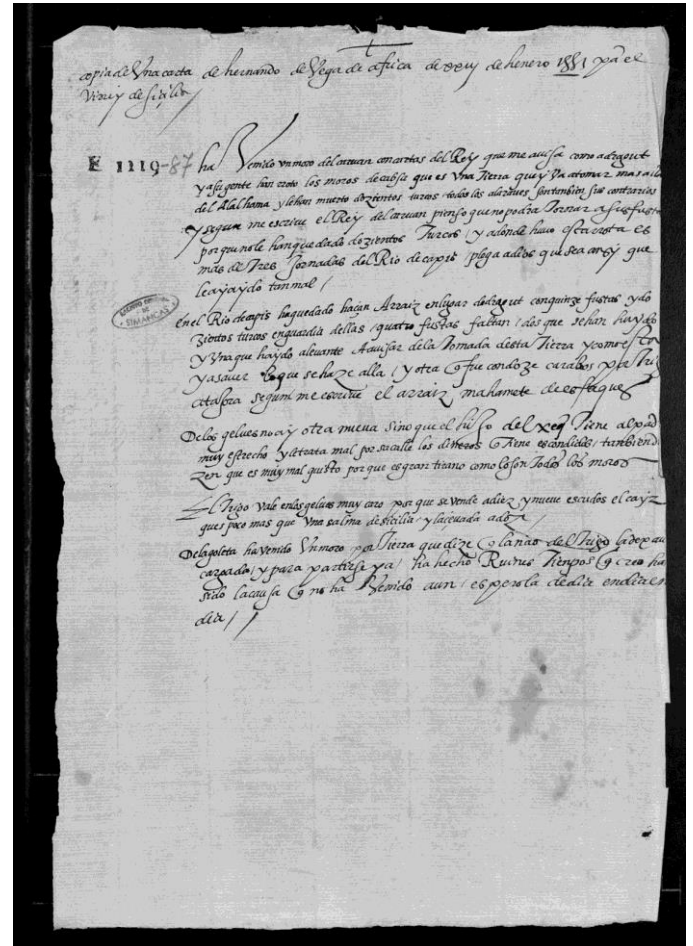 copia de Una carta de hernando de Vega de africa de xxiij de henero 1551 pa el
Virrey de siçilia /
E 1119-87
ha Venido un moro del caruan con cartas del Rey que me auisa como a dragut
y a su gente han roto los moros de cabsia que es Una tierra que yVa a tomar mas alla
del Alalhama y le han muerto dozientos turcos todos los alarabes son tambien sus contrarios
y segun me escriue el Rey del caruan pienso que no podra tornar a sus fustas
porque no le han quedado dozientos Turcos / y adonde huuo esta rota es
mas de Tres Jornadas del Rio de capis / plega a dios que sea ansy que
le aya ydo tan mal /
ARCHIVO GENERAL DE SIMANCAS
en el Rio de capis ha quedado haçan Arraiz en lugar de dragut con quinze fustas y do
zientos turcos en guardia dellas / quatro fustas faltan / dos que se han hay
y Una que ha ydo a leuante A auisar de la Tomada desta Tierra y
y a sauer lo que se haze alla / y otra q fue con doze carabos
segun me escriue el arraiz mahamete de esfaques
De los gelues no ay otra nueua sino que el hijo del xeq Tiene al pad
muy estrecho y le trata mal por sacalle los dineros q Tiene escondidos / tambien di
zen que es muy mal quisto porque es gran tirano como lo son Todos los moros
El Trigo vale en los gelues muy caro porque se vende a diez y nueue escudos el cayz
ques poco mas que Una salma de sicilia / y la ceuada a doze /
De la goleta ha venido Un moro por Tierra que dize q la nao del Trigo la dexaua
cargada / y para partirse ya / ha hecho Ruines Tienpos q creo ha
sido la causa q no ha Venido aun / espero la de dia en dia